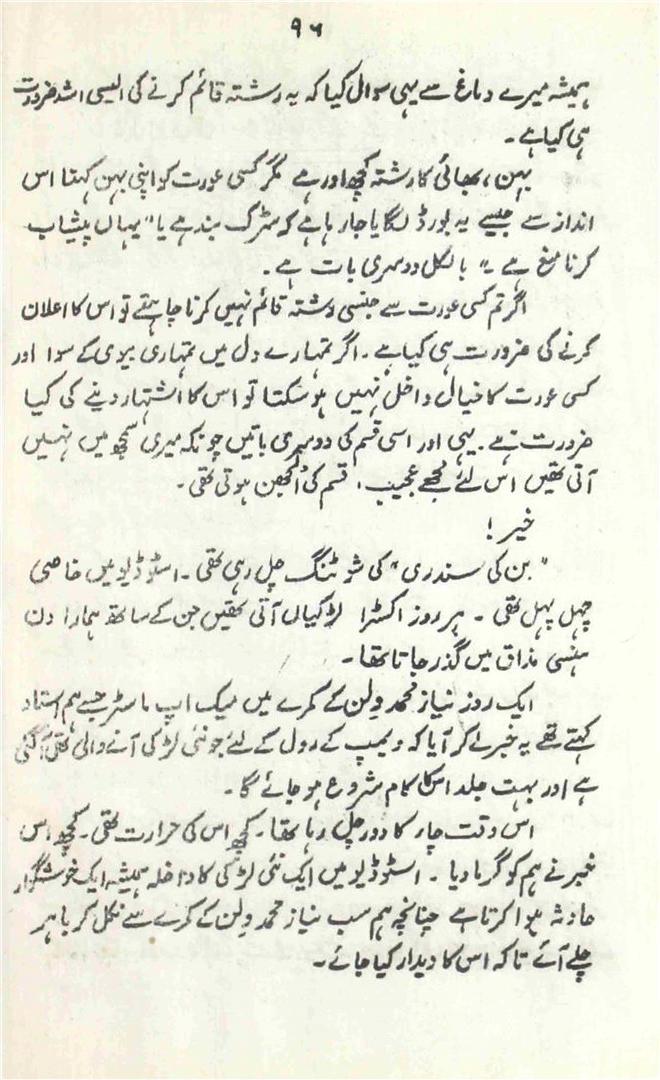 ۹۶
ہمیشہ میرے دماغ سے یہی سوال کیا کہ یہ رشتہ قائم کرنے کی ایسی اشد ضرورت
ہی کیا ہے۔
بہن، بھائی کا رشتہ کچھ اور ہے مگر کسی عورت کو اپنی بہن کہنا اس
انداز سے جیسے یہ بورڈ لگایا جا رہا ہے کہ سڑک بند ہے یا "یہاں پیشاب
کرنا منع ہے" بالکل دوسری بات ہے۔
اگر تم کسی عورت سے جنسی رشتہ قائم نہیں کرنا چاہتے تو اس کا اعلان
کرنے کی ضرورت ہی کیا ہے۔ اگر تمہارے دل میں تمہاری بیوی کے سوا اور
کسی عورت کا خیال داخل نہیں ہو سکتا تو اس کا اشتہار دینے کی کیا
ضرورت ہے۔ یہی اور اسی قسم کی دوسری باتیں چونکہ میری سمجھ میں نہیں
آتی تھیں اس لئے مجھے عجیب قسم کی اُلجھن ہوتی تھی۔
خیر!
"بن کی سندری" کی شوٹنگ چل رہی تھی۔ اسٹوڈیو میں خاصی
چہل پہل تھی۔ ہر روز اکسٹرا لڑکیاں آتی تھیں جن کے ساتھ ہمارا دن
ہنسی مذاق میں گذر جاتا تھا۔
ایک روز نیاز محمد وِلن کے کمرے میں میک اپ ماسٹر جسے ہم استاد
کہتے تھے یہ خبر لے کر آیا کہ ویمپ کے رول کے لئے جو نئی لڑکی آنے والی تھی آ گئی
ہے اور بہت جلد اس کا کام شروع ہو جائے گا۔
اس وقت چار کا دور چل رہا تھا۔ کچھ اس کی حرارت تھی۔ کچھ اس
خبر نے ہم کو گرما دیا۔ اسٹوڈیو میں ایک نئی لڑکی کا داخلہ ہمیشہ ایک خوشگوار
حادثہ ہوا کرتا ہے چنانچہ ہم سب نیاز محمد وِلن کے کمرے سے نکل کر باہر
چلے آئے تاکہ اس کا دیدار کیا جائے۔